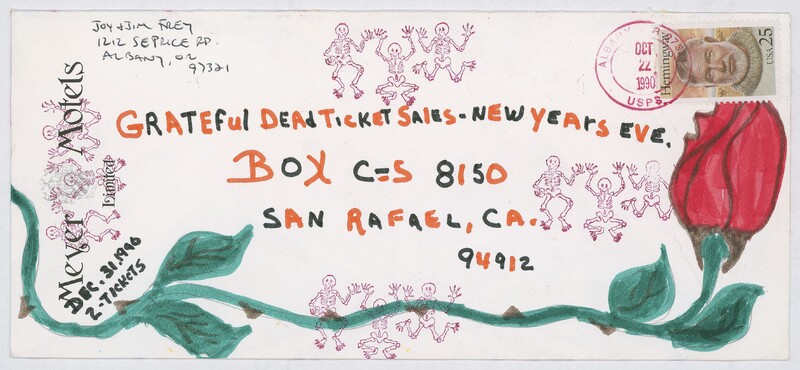 Joy + Jim Frey
1212 Seprice Rd.
Albany, or
97321
ALBANY
OCT
22
1990
USPS
Hemingway
USA 25
Meyer Motels
Limited
GRATEful DEAd TicKET SAles - NEW YEArs EVE.
BOX C=S 8150
SAN RAFAEL, CA.
94912
DEC. 31, 1990
2 - TICKETS